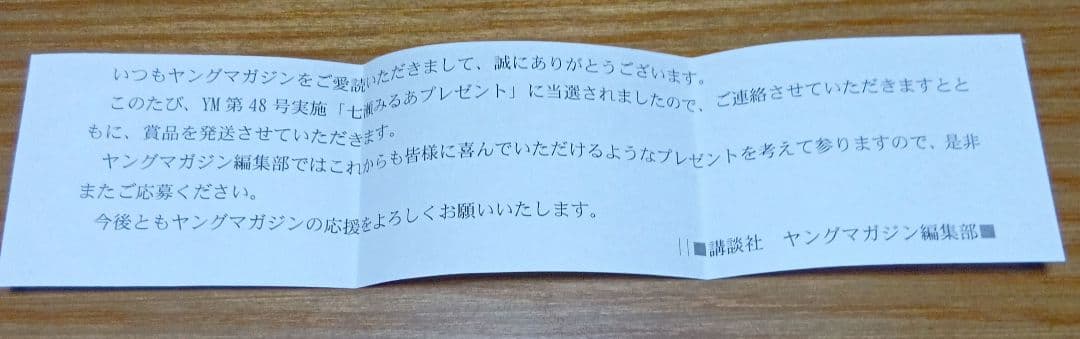 いつもヤングマガジンをご愛読いただきまして、誠にありがとうございます。
このたび、YM 第 48 号実施「七瀬みるあプレゼント」に当選されましたので、ご連絡させていただきますとと
もに、賞品を発送させていただきます。
ヤングマガジン編集部ではこれからも皆様に喜んでいただけるようなプレゼントを考えて参りますので、是非
またご応募ください。
今後ともヤングマガジンの応援をよろしくお願いいたします。
||■講談社　ヤングマガジン編集部■